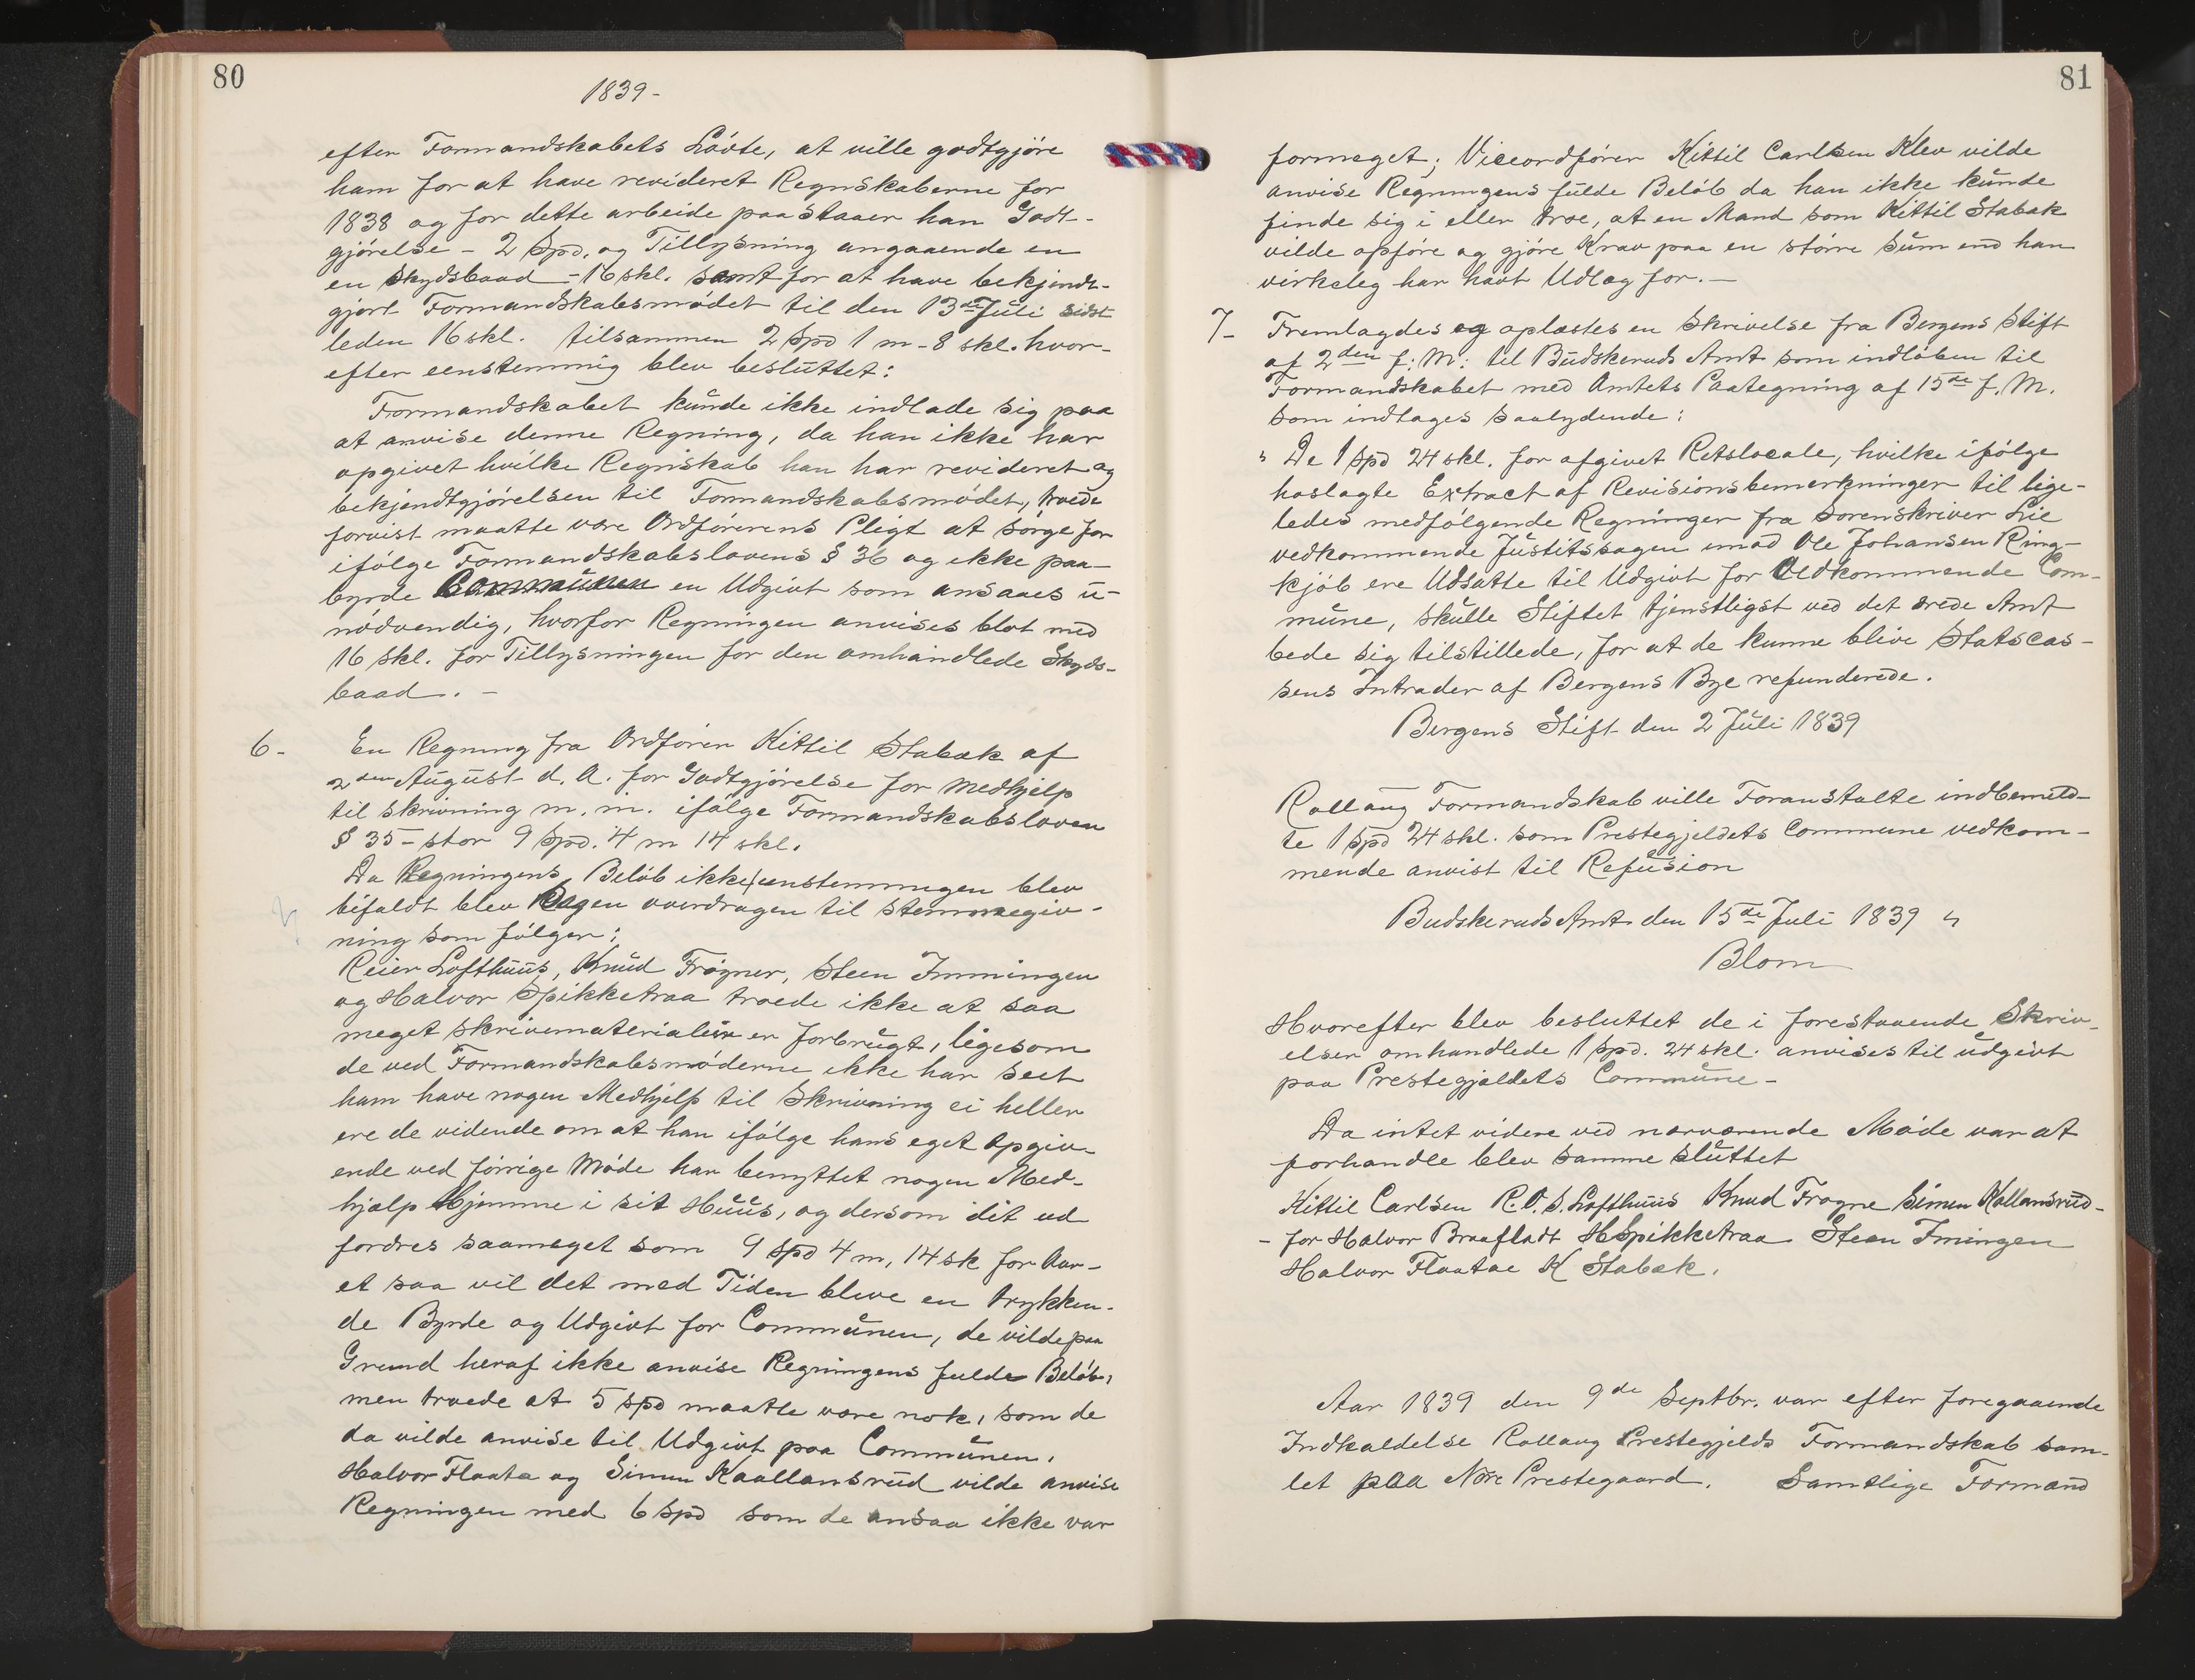 80
1839-
efter Formandskabets Løvte, at ville godtgjöre
ham for at have revideret Regnskaberne for
1838 og for dette arbeide paastaaer han Godt-
gjörelse - 2 Spd. og Tillysning angaaende en
en Skydsbaad - 16 skl. samt for at have bekjendt-
gjort Formandskabsmödet til den 13de Juli sidst
leden 16 skl. tilsammen 2 Spd 1 m - 8 skl. hvor-
efter eenstemmig blev besluttet:
Formandskabet kunde ikke indlade sig paa
at anvise denne Regning, da han ikke har
opgivet hvilke Regnskab han har revideret og
bekjendtgjörelsen til Formandskabsmödet, troede
forvist maatte være Ordförerens Pligt at sörge for
ifölge Formandskabslovens § 36 og ikke paa-
byrde Communen en Udgivt som ansaaes u-
nödvendig, hvorfor Regningen anvises blot med
16 skl. for Tillysningen for den omhandlede Skyds-
baad. -
6- En Regning fra Ordförer Kittil Stabæk af
2den August d. A. for Godtgjörelse for Medhjelp
til skrivning m. m. ifölge Formandskabsloven
§ 35 - stor 9 Spd. 4 m 14 skl.
Da Regningens Belöb ikke eenstemmigen blev
bifaldt blev Sagen overdragen til stemmegiv-
ning som fölger:
Reier Lofthuus, Knud Frögner, Steen Immingen
og Halvor Spikketraa troede ikke at saa
meget skrivematerialier er forbrugt, ligesom
de ved Formandskabsmöderne ikke har seet
ham have nogen Medhjelp til Skrivning ei heller
ere de vidende om at han ifölge hans eget Opgiv-
ende ved forrige Möde har benyttet nogen Med-
hjælp Hjemme i sit Huus, og dersom dit ud
fordres saameget som 9 Spd 4 m, 14 sk for Aar-
et saa vil det med Tiden blive en trykken-
de Byrde og Udgivt for Communen, de vilde paa
Grund heraf ikke anvise Regningens fulde Belöb,
men troede at 5 Spd maatte være nok, som de
da vilde anvise til Udgivt paa Communen.
Halvor Flaata og Simen Kaallansrud vilde anvise
Regningen med 6 Spd som de ansaa ikke var
81
formeget; Viceordförer Kittil Carlsen Klev vilde
anvise Regningens fulde Belöb da han ikke kunde
finde sig i eller troe, at en Mand som Kittil Stabæk
vilde opföre og gjöre Krav paa en större Sum end han
virkeleg har havt Udlæg for. -
7- Fremlagdes og oplæstes en Skrivelse fra Bergens Stift
af 2den f: M: til Budskeruds Amt som indlöben til
Formandskabet med Amtets Paategning af 15de f. M.
som indtages saalydende:
" De 1 Spd 24 skl. for afgivet Retslocale, hvilke ifölge
hoslagte Extract af Revisionsbemerkninger til lige-
ledes medfölgende Regninger fra Sorenskriver Lie
vedkommende Justitssagen imod Ole Johansen Ring-
kjöb ere Udsatte til Udgivt for Vedkommende Com-
mune, skulle Stiftet tjenstligst ved det Ærede Amt
bede sig tilstillede, for at de kunne blive Statscas-
sens Intrader af Bergens Bye refunderede.
Bergens Stift den 2 Juli 1839
Rollaug Formandskab ville Foranstalte indbemeld-
te 1 Spd 24 skl. som Prestegjeldets Commune vedkom-
mende anvist til Refusion
Budskeruds Amt den 15de Juli 1839 "
Blom
Hvorefter blev besluttet de i forestaaende Skriv-
elser omhandlede 1 Spd. 24 skl. anvises til udgivt
paa Prestegjældets Commune -
Da intet videre ved nærværende Möde var at
forhandle blev samme sluttet
Kittil Carlsen R. O. S. Lofthuus Knud Frogne Simen Kallansrud-
- for Halvor Braafladt H Spikketraa Steen Imingen
Halvor Flaatae K Stabæk.
Aar 1839 den 9de Septbr. var efter foregaaende
Indkaldelse Rollaug Prestegjelds Formandskab sam-
let paa Nöre Prestegaard. Samtlige Formænd